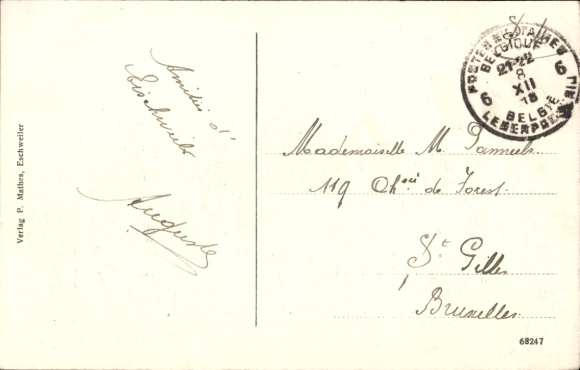 Verlag P. Mathes, Eschweiler
Amitiés d'
Eischweiler
Auguste
POSTES MILITAIRES
BELGIQUE
21-22
8
XII
6 6
BELGIË
LEGERPOSTERIJ
Mademoiselle M.
119 Chsée de Forest.
St Gilles
Bruxelles.
68247